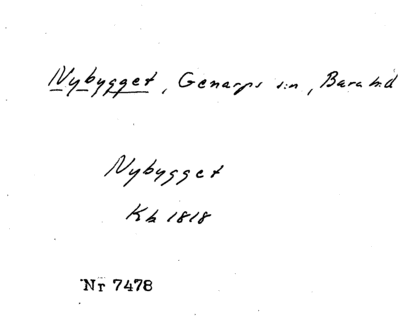 Nybygget, Genarps sn, Bara hd
Nybygget
Kb 1818
Nr 7478